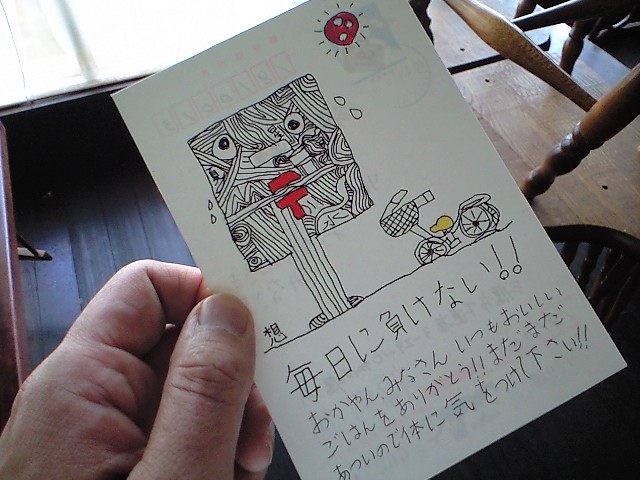 想
毎日に負けない!!
おかやん、みなさん いつもおいしい
ごはんをありがとう!! まだまだ
あついので体に気をつけて下さい!!